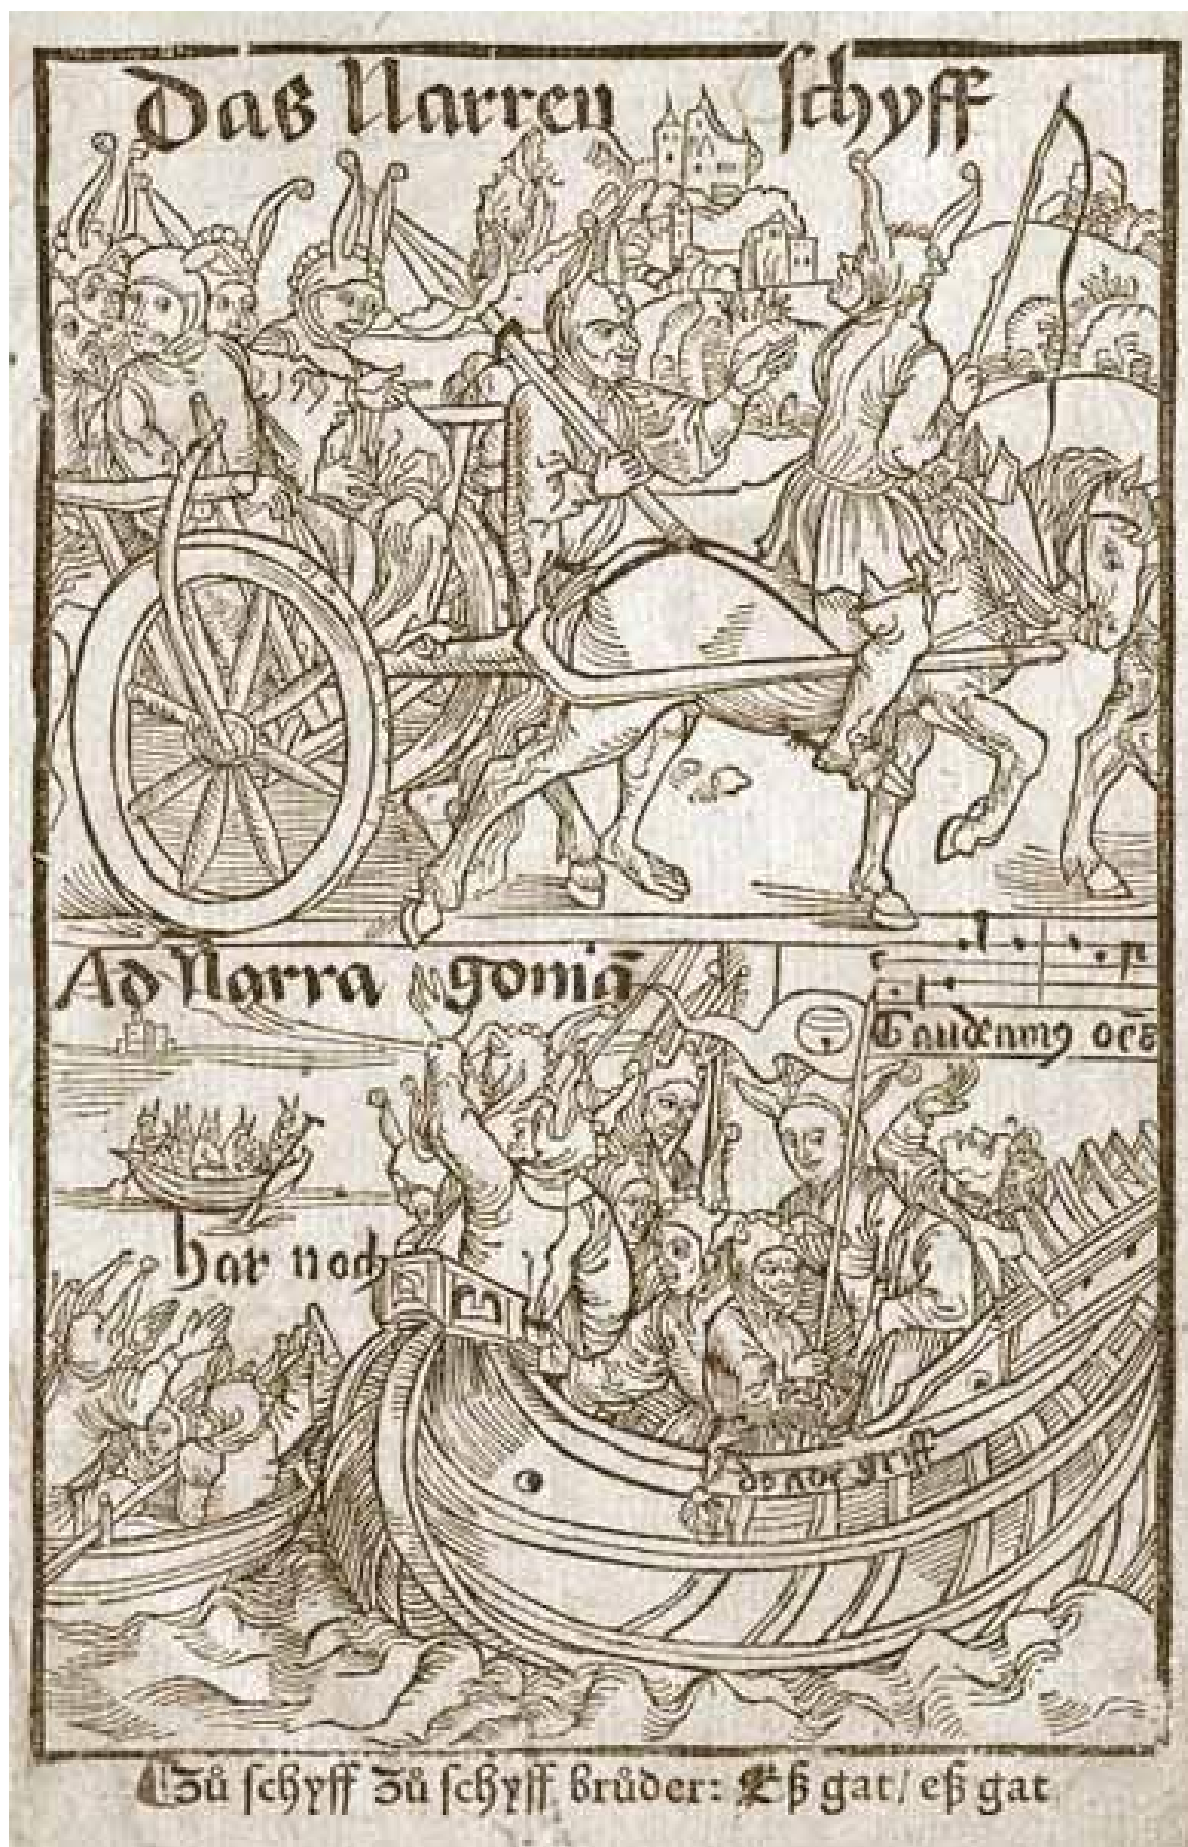 Das Narren schyff
Ad Narra goniā
Gaudeamꝰ oēs
har noch
doctor griff
Zů schyff Zů schyff brůder: Eß gat/ eß gat